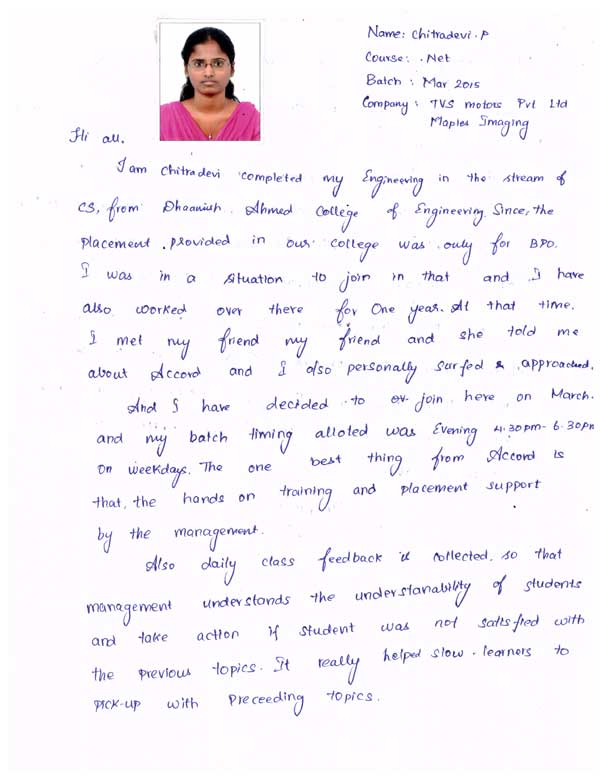 Name: Chitradevi.P
Course: .Net
Batch: Mar 2015
Company: TVS motors Pvt Ltd
Maples Imaging
Hi all,
I am Chitradevi completed my Engineering in the stream of
CS, from Dhaanish Ahmed College of Engineering. Since, the
placement provided in our college was only for BPO.
I was in a situation to join in that and I have
also worked over there for One year. At that time,
I met my friend my friend and she told me
about Accord and I also personally surfed & approached.
And I have decided to join here on March.
and my batch timing alloted was Evening 4:30pm - 6:30pm
on weekdays. The one best thing from Accord is
that, the hands on training and placement support
by the management.
Also daily class feedback is collected, so that
management understands the understanability of students
and take action if student was not satisfied with
the previous topics. It really helped slow learners to
pick-up with Preceeding topics.